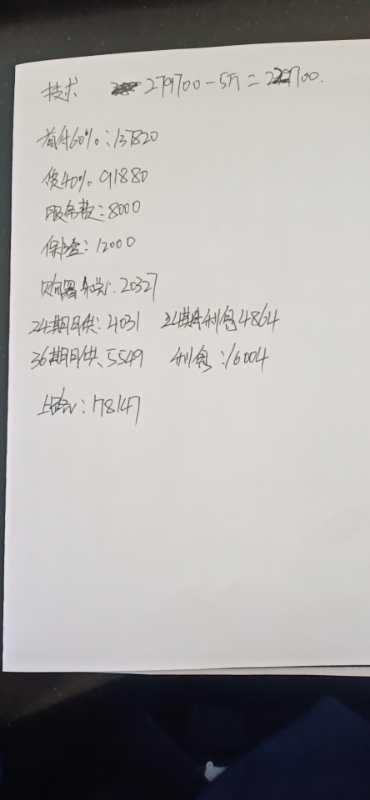 技术 279700-5万=229700.
首付60%:137820
贷40% 91880
服务费:8000
保险:12000
购置税:20327
24期月供:4031 24期利息4864
36期月供:5549 利息:16004
上路:178147